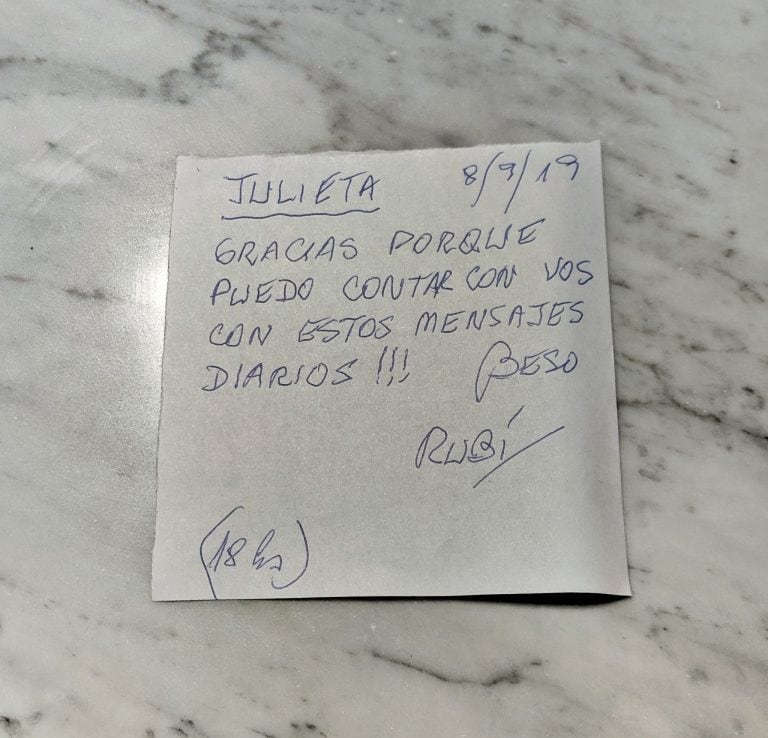 JULIETA 8/9/19
GRACIAS PORQUE
PUEDO CONTAR CON VOS
CON ESTOS MENSAJES
DIARIOS !!! BESO
RUBÍ
(18 hs)